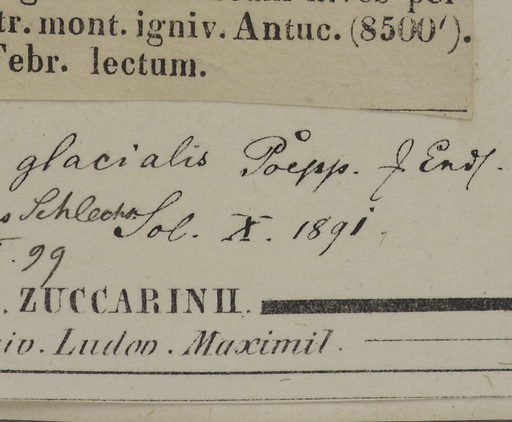 tr. mont. igniv. Antuc. (8500').
Febr. lectum.
glacialis Poepp. & Endl.
Schlechter Sol. X. 1891.
.99
. ZUCCARINII.
iv. Ludov. Maximil.